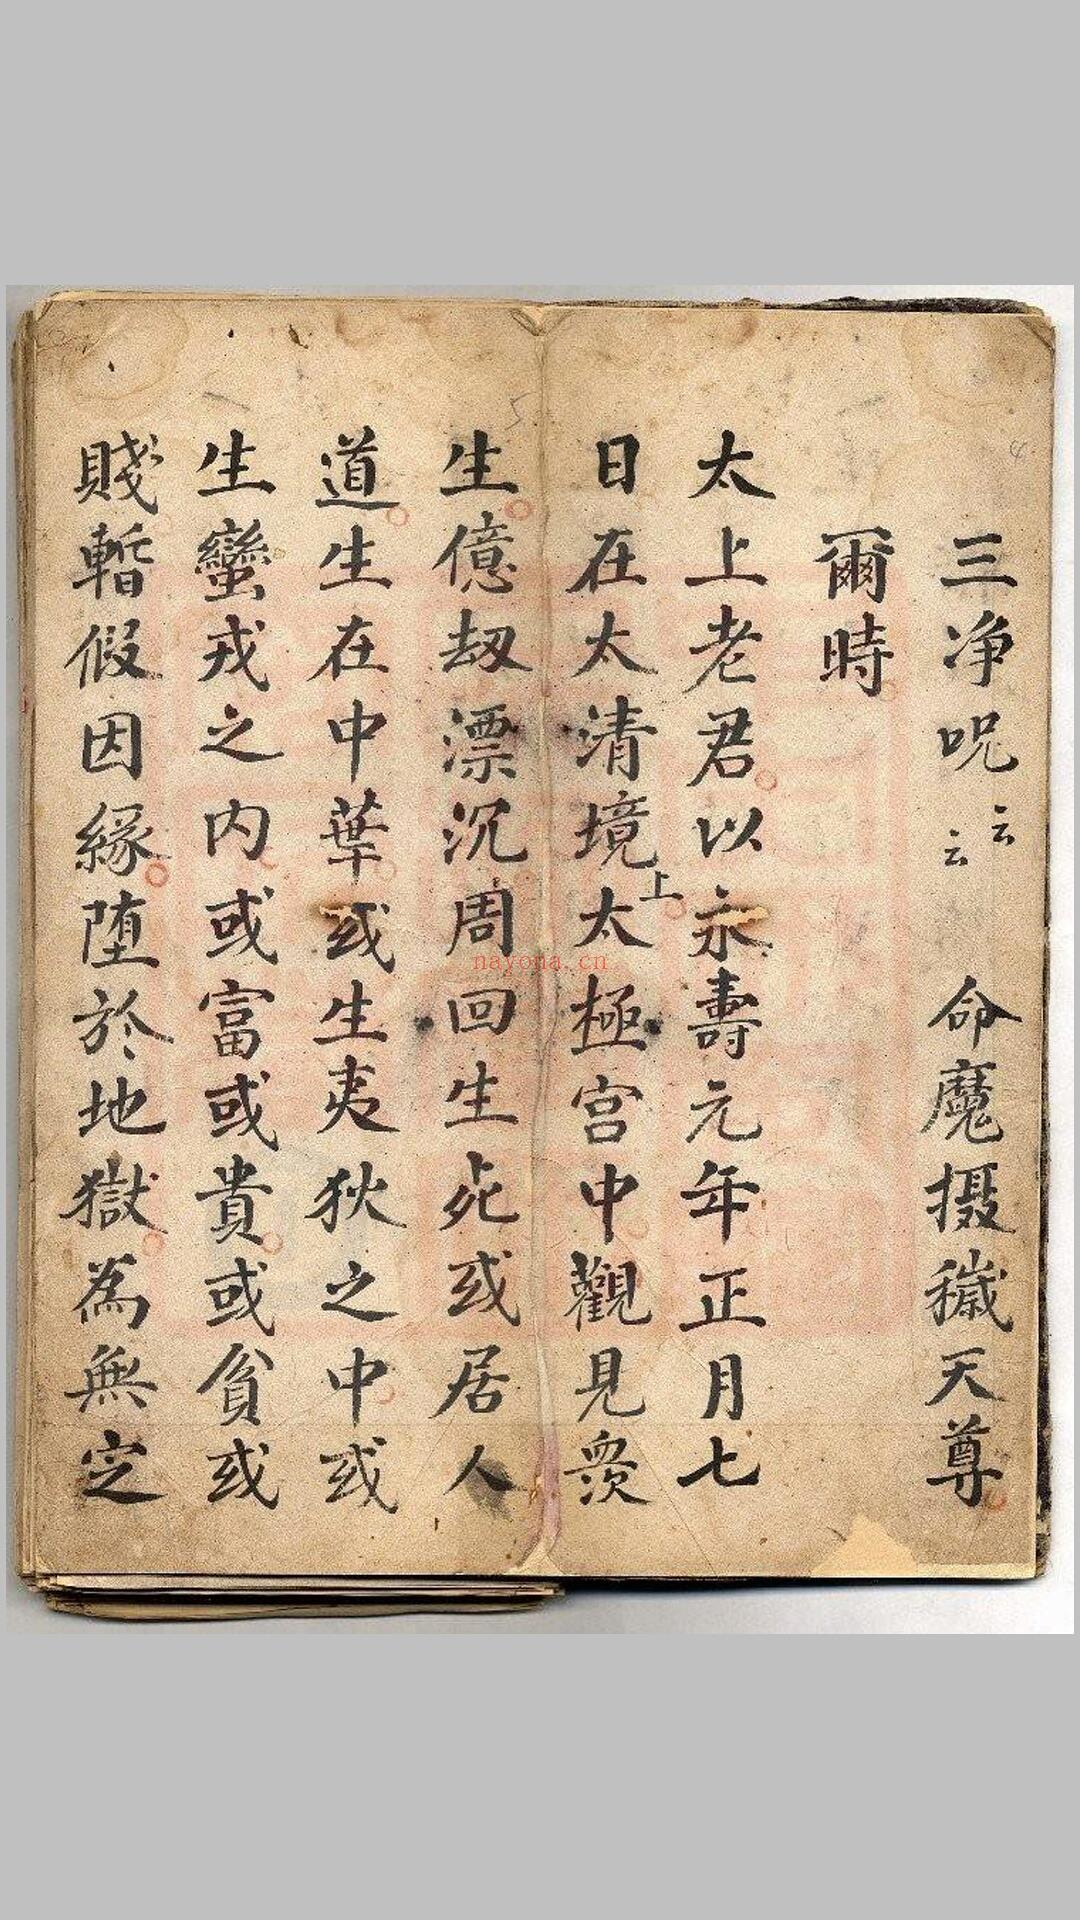 三净呪云云 命魔摄穢天尊
爾時
太上老君以永壽元年正月七
日在太清境上太極宮中觀見眾
生億劫漂沉周回生死或居人
道生在中華或生夷狄之中或
生蠻戎之內或富或貴或貧或
賤暫假因緣堕於地獄為無定
nayona.cn